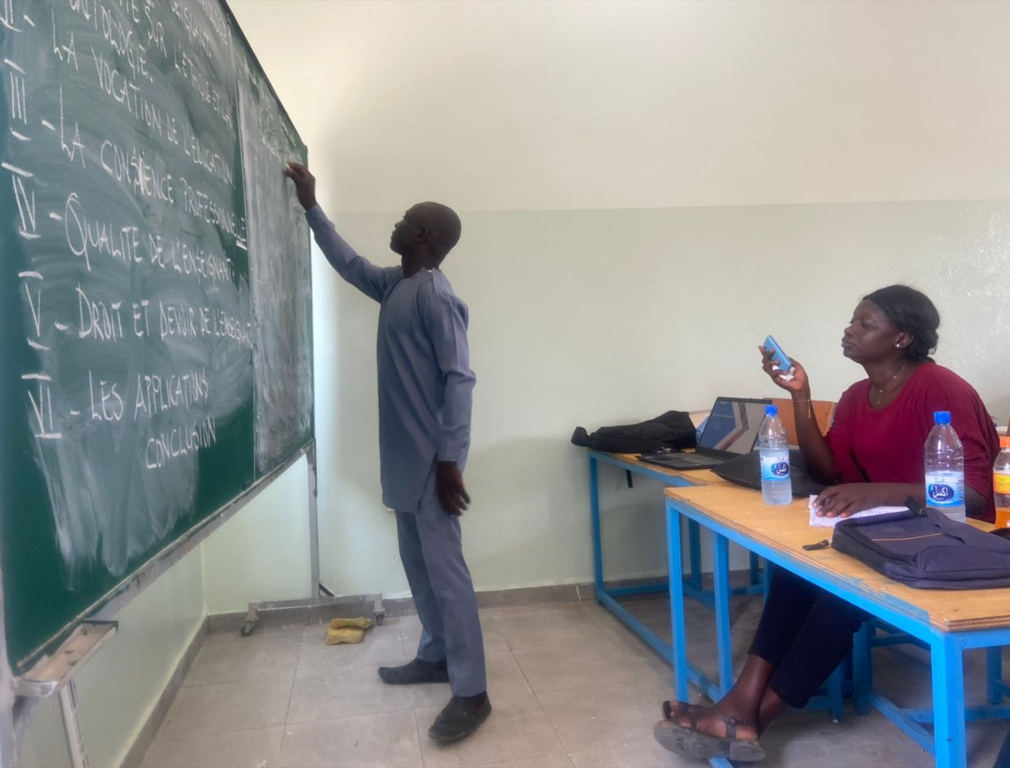 II-
TE SUR L'ETUDE DE LA
ONTOLOGIE.
LA VOCATION DE L'EDUCATION
III - LA CONSCIENCE PROFESSIONNELLE
IV - QUALITE DE L'ENSEIGNANT.
V - DROIT ET DEVOIR DE L'ENSEIGNANT
VI - LES APPLICATIONS
CONCLUSION